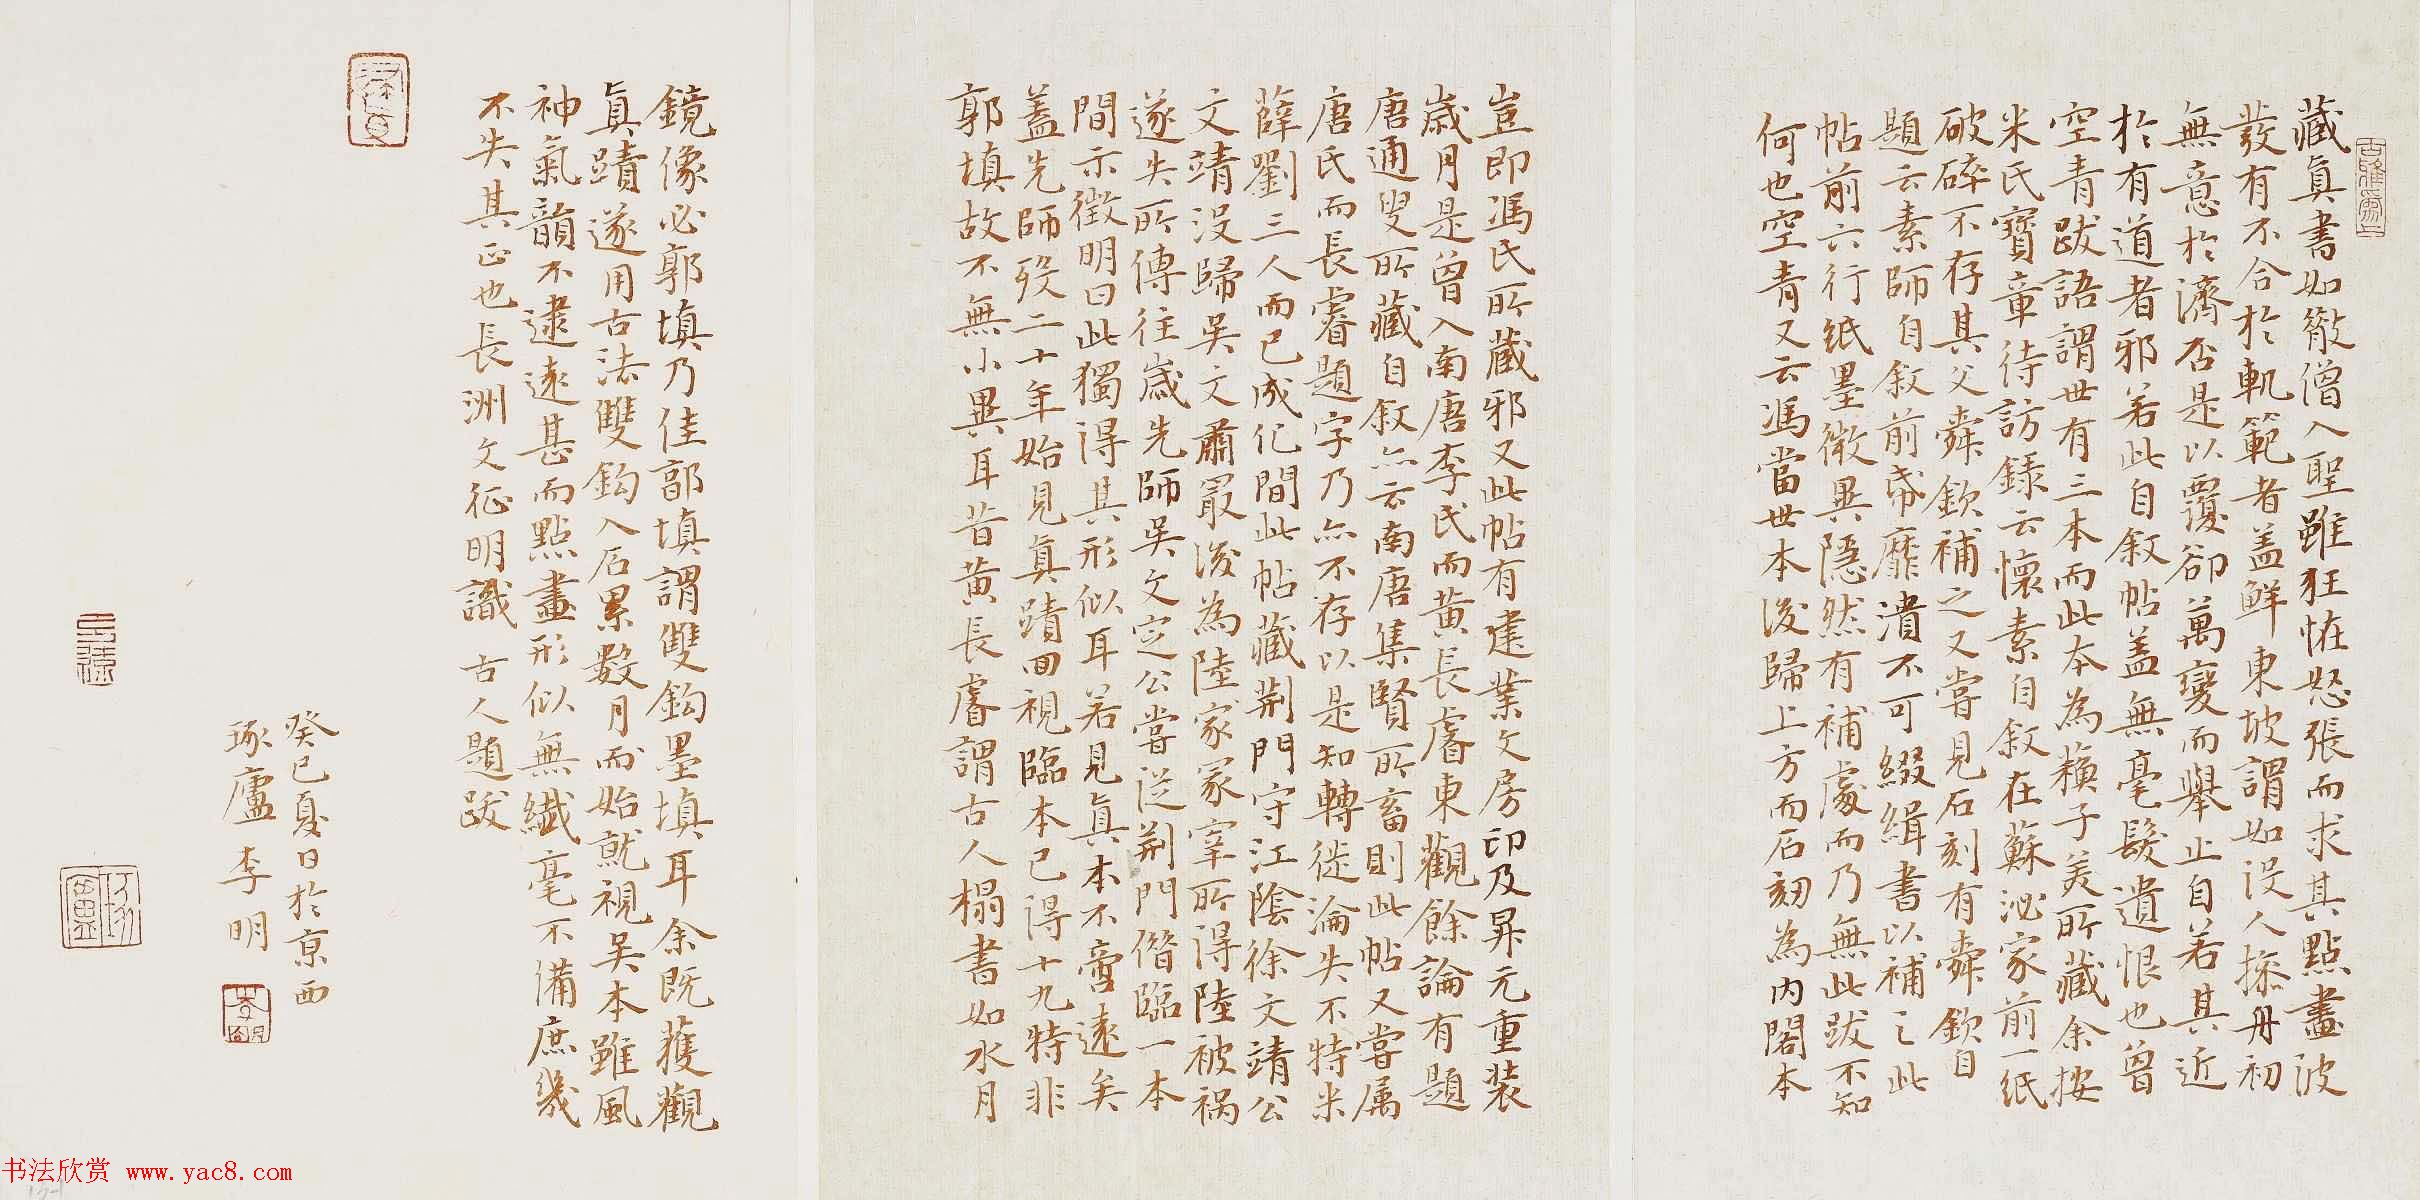 藏真書如散僧入聖雖狂怪怒張而求其點畫波
發有不合於軌範者蓋鮮東坡謂如沒人操舟初
無意於濟否是以覆卻萬變而舉止自若其近
於有道者邪若此自敘帖蓋無毫髮遺恨也曾
空青跋語謂世有三本而此本為蘇子美所藏余按
米氏寶章待訪錄云懷素自敘在蘇泌家前一紙
破碎不存其父舜欽補之又嘗見石刻有舜欽自
題云素師自敘前帋糜潰不可綴緝書以補之此
帖前六行紙墨微異隱然有補處而乃無此跋不知
何也空青又云馮當世本後歸上方而石刻為內閣本
豈即馮氏所藏邪又此帖有建業文房印及昇元重裝
歲月是曾入南唐李氏而黃長睿東觀餘論有題
唐通叟所藏自敘亦云南唐集賢所畜則此帖又嘗属
唐氏而長睿題字乃亦不存以是知轉徙淪失不特米
薛劉三人而已成化間此帖藏荊門守江陰徐文靖公
文靖沒歸吳文肅最後為陸冢宰所得陸被禍
遂失所傳往歲先師吳文定公嘗從荊門借臨一本
間示徵明曰此獨得其形似耳若見真本不啻遠矣
蓋先師歿二十年始見真蹟回視臨本已得十九特非
郭填故不無小異耳昔黃長睿謂古人搨書如水月
鏡像必郭填乃佳郭填謂雙鈎墨填耳余既獲觀
真蹟遂用古法雙鈎入石累數月而始就視吳本雖風
神氣韻不逮遠甚而點畫形似無纖毫不備庶幾
不失其正也長洲文征明識 古人題跋
癸巳夏日於京西
琢廬李明
书法欣赏 www.yac8.com